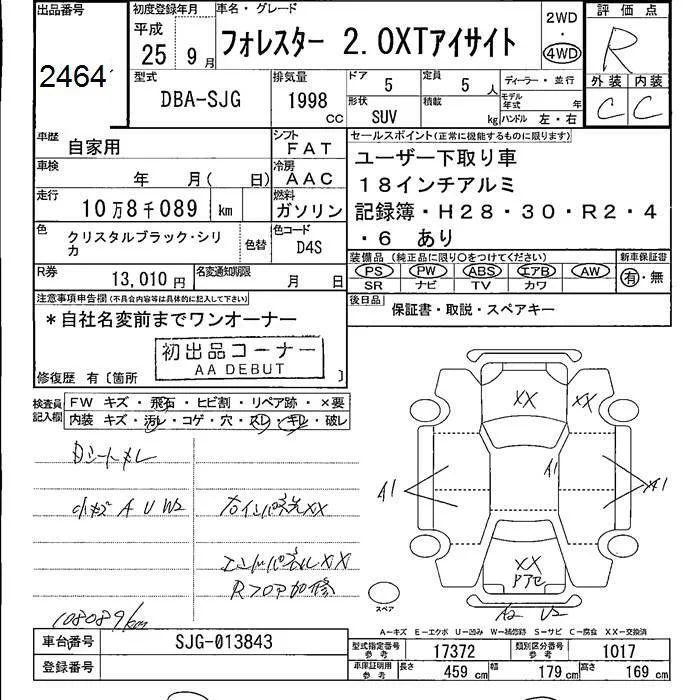 出品番号
2464
初度登録年月
平成
25 9月
車名・グレード
フォレスター 2.0XTアイサイト
2WD
・
4WD
評価点
R
外装 内装
C C
型式
DBA-SJG
排気量
1998
cc
ドア
5
定員
5 人
ディーラー・並行
形状
SUV
積載
kg
モデル年式 年
ハンドル 左・右
車歴
自家用
シフト
FAT
車検
年 月( 日)
冷房
AAC
走行
10万8千089 km
燃料
ガソリン
色
クリスタルブラック・シリカ
色替
色コード
D4S
R券
13,010円
名変通知期限
月 日
セールスポイント(正常に機能するものに限ります)
ユーザー下取り車
18インチアルミ
記録簿・H28・30・R2・4
・6 あり
装備品 (純正品に限り○をつけてください)
PS PW ABS エアB AW
SR ナビ TV カワ
新車保証書
有・無
後日品
保証書・取説・スペアキー
注意事項申告欄(不具合内容等は具体的に記入して下さい)
*自社名変前までワンオーナー
初出品コーナー
AA DEBUT
修復歴 有〔箇所 〕
検査員記入欄
FW キズ・飛石・ヒビ割・リペア跡・×要
内装 キズ・汚レ・コゲ・穴・スレ・キレ・破レ
Dシートスレ
小キズ A U W2
右インパネ先XX
エンドパネルXX
Rフロア加修
108089km
XX XX
A1
A1
A1
XX
Pアセ
A2 U2
スペア
A―キズ E―エクボ U―凹み W―補修跡 S―サビ C―腐食 XX―交換済
車台番号
SJG-013843
登録番号
型式指定番号参考
17372
類別区分番号参考
1017
車庫証明用参考
長さ 459 cm 幅 179 cm 高さ 169 cm